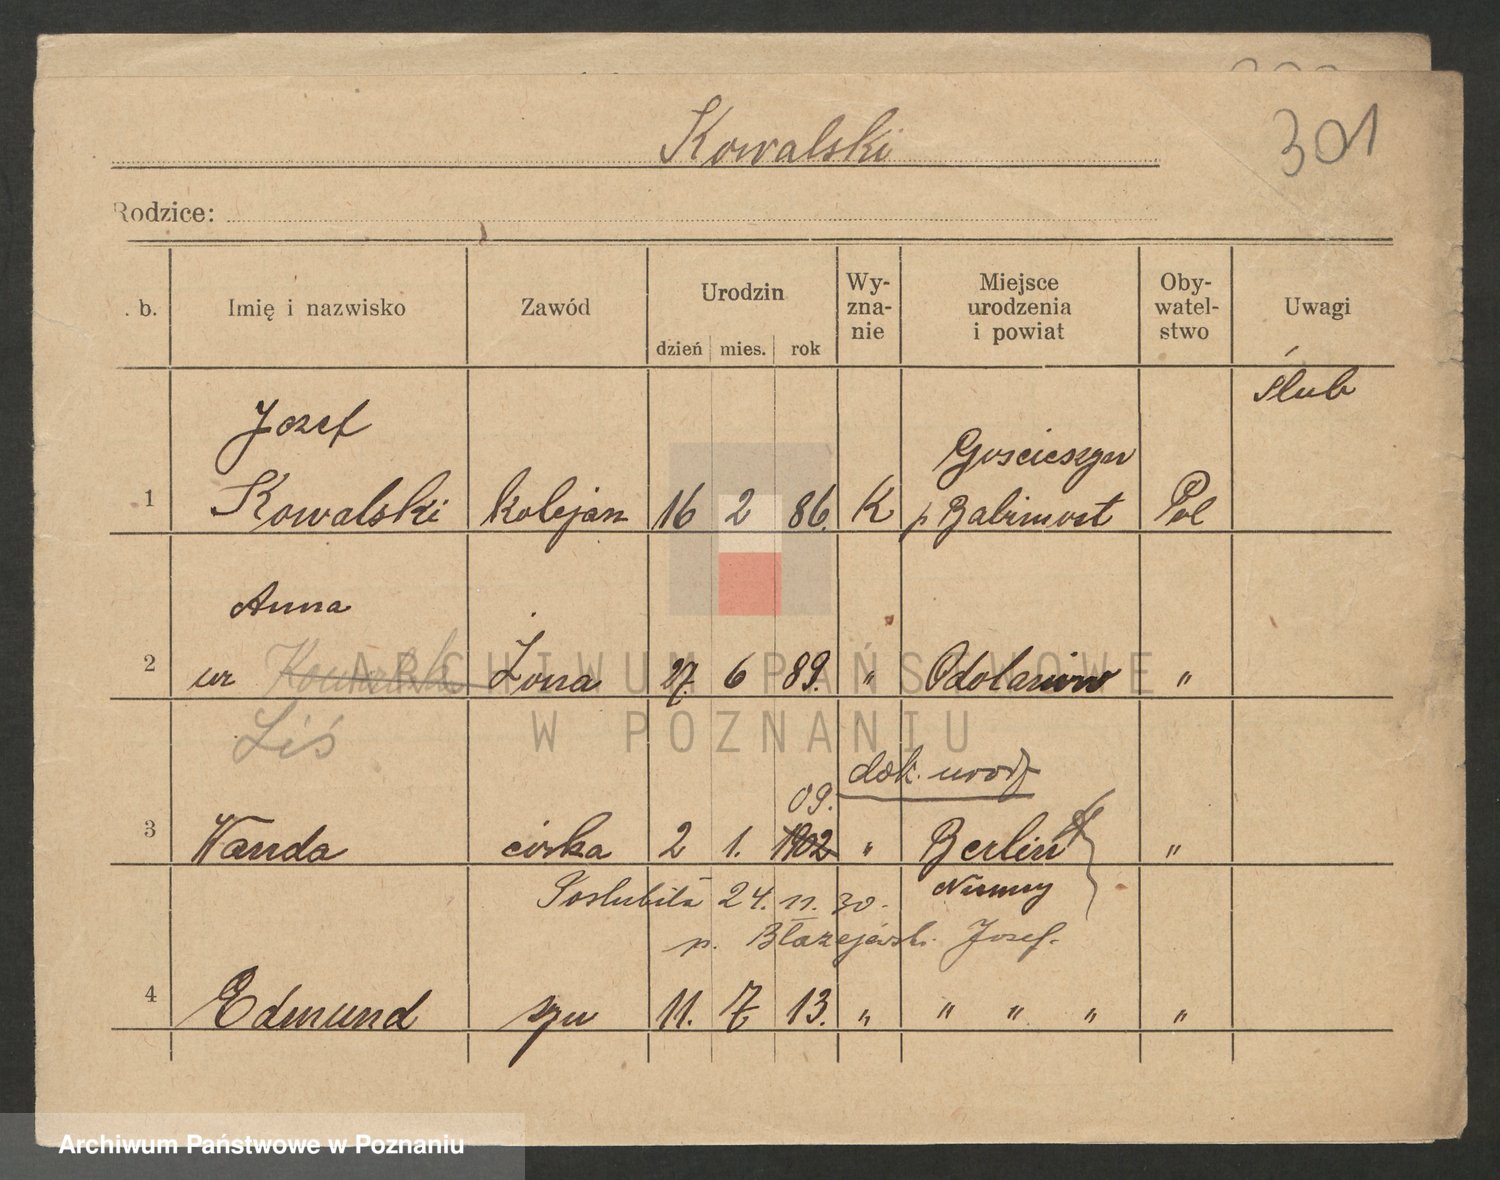 Kowalski
301
Rodzice:
. b.
Imię i nazwisko
Zawód
Urodzin
dzień mies. rok
Wy-
zna-
nie
Miejsce
urodzenia
i powiat
Oby-
watel-
stwo
Uwagi
Ślub
Jozef
Gościeszyn
1 Kowalski kolejarz 16 2 86. K p Babimost Pol
Anna
2 ur Żona 27. 6 89. " Odolanów "
ARCHIWUM PAŃSTWOWE
W POZNANIU
Liś
dok. urodz
09.
3 Wanda córka 2 1. 1902 " Berlin "
Niemcy
Poślubiła 24. 11. 30.
p. Błażejewski Jozef.
4 Edmund syn 11. 7 13. " " " " "
Archiwum Państwowe w Poznaniu